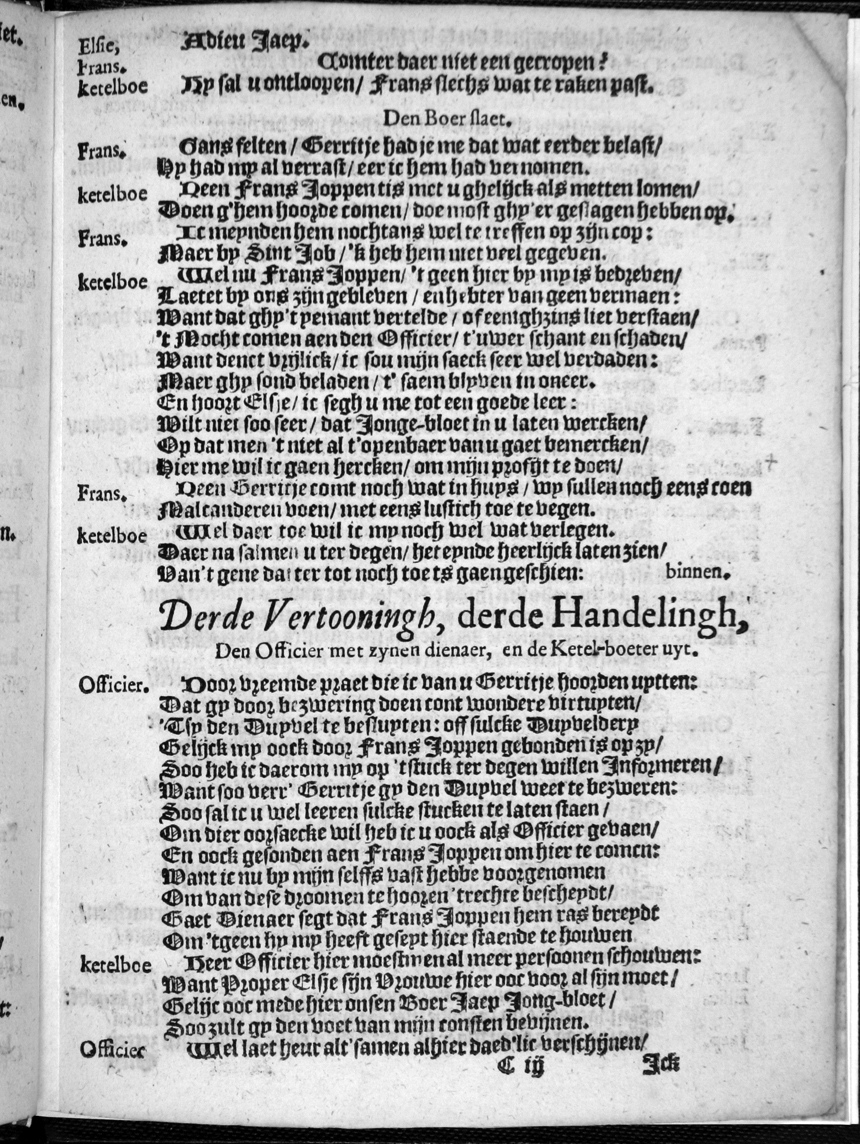 Elsie, Adieu Jaep.
Frans. Comter daer niet een gecropen?
ketelboe Hy sal u ontloopen/ Frans slechs wat te raken past.
Den Boer slaet.
Frans. Gans felten/ Gerritje had je me dat wat eerder belast/
Hy had my al verrast/ eer ic hem had vernomen.
ketelboe Neen Frans Joppen tis met u ghelijck als metten lomen/
Doen g'hem hoorde comen/ doe most ghy'er geslagen hebben op.
Frans. Ic meynden hem nochtans wel te treffen op zijn cop:
Maer by Sint Job/ 'k heb hem niet veel gegeven.
ketelboe Wel nu Frans Joppen/ 't geen hier by my is bedreven/
Laetet by ons zijn gebleven/ en hebter van geen vermaen:
Want dat ghy't yemant vertelde/ of eenighzins liet verstaen/
't Mocht comen aen den Officier/ t'uwer schant en schaden/
Want denct vrijlick/ ic sou mijn saeck seer wel verdaden:
Maer ghy sond beladen/ t' saem blyven in oneer.
En hoort Elsje/ ic segh u me tot een goede leer:
Wilt niet soo seer/ dat Jonge-bloet in u laten wercken/
Op dat men 't niet al t'openbaer van u gaet bemercken/
Hier me wil ic gaen hercken/ om mijn profijt te doen/
Frans. Neen Gerritje comt noch wat in huys/ wy sullen noch eens coen
Malcanderen voen/ met eens lustich toe te vegen.
ketelboe Wel daer toe wil ic my noch wel wat verlegen.
Daer na salmen u ter degen/ het eynde heerlijck laten zien/
Van't gene datter tot noch toe is gaen geschien: binnen.
Derde Vertooningh, derde Handelingh,
Den Officier met zynen dienaer, en de Ketel-boeter uyt.
Officier. Door vreemde praet die ic van u Gerritje hoorden uytten:
Dat gy door bezwering doen cont wondere virtuyten/
'Tsy den Duyvel te besluyten: off sulcke Duyveldery
Gelijck my oock door Frans Joppen gebonden is op zy/
Soo heb ic daerom my op 'tstuck ter degen willen Informeren/
Want soo verr' Gerritje gy den Duyvel weet te bezweren:
Soo sal ic u wel leeren sulcke stucken te laten staen/
Om dier oorsaecke wil heb ic u oock als Officier gevaen/
En oock gesonden aen Frans Joppen om hier te comen:
Want ic nu by mijn selffs vast hebbe voorgenomen
Om van dese droomen te hooren 'trechte bescheydt/
Gaet Dienaer segt dat Frans Joppen hem ras bereydt
Om 'tgeen hy my heeft geseyt hier staende te houwen
ketelboe Heer Officier hier moestmen al meer persoonen schouwen:
Want Proper Elsje sijn Vrouwe hier oot voor al sijn moet/
Gelijc ooc mede hier onsen Boer Jaep Jong-bloet/
Soo zult gy den voet van mijn consten bevijnen.
Officier Wel laet heur alt'samen alhier daed'lic verschijnen/
C iij Ick